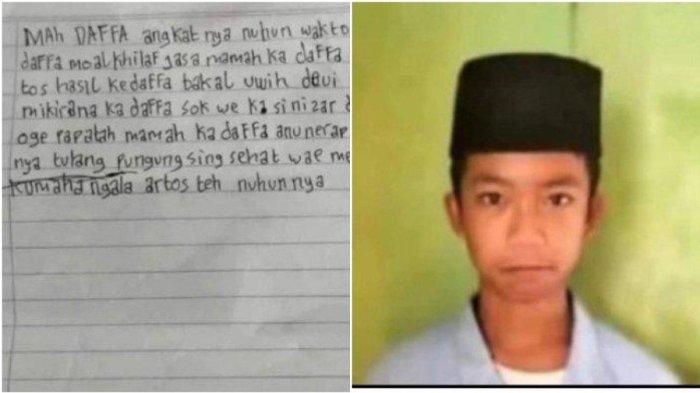 MAH DAFFA angkat nya nuhun wakto
daffa moal khilaf jasa mamah ka daffa
tos hasil kedaffa bakal uwih deui
mikirana ka daffa sok we ka si nizar
oge papatah mamah ka daffa anu nerap
nya tulang pungung sing sehat wae
kumaha ngala artos teh nuhun nya